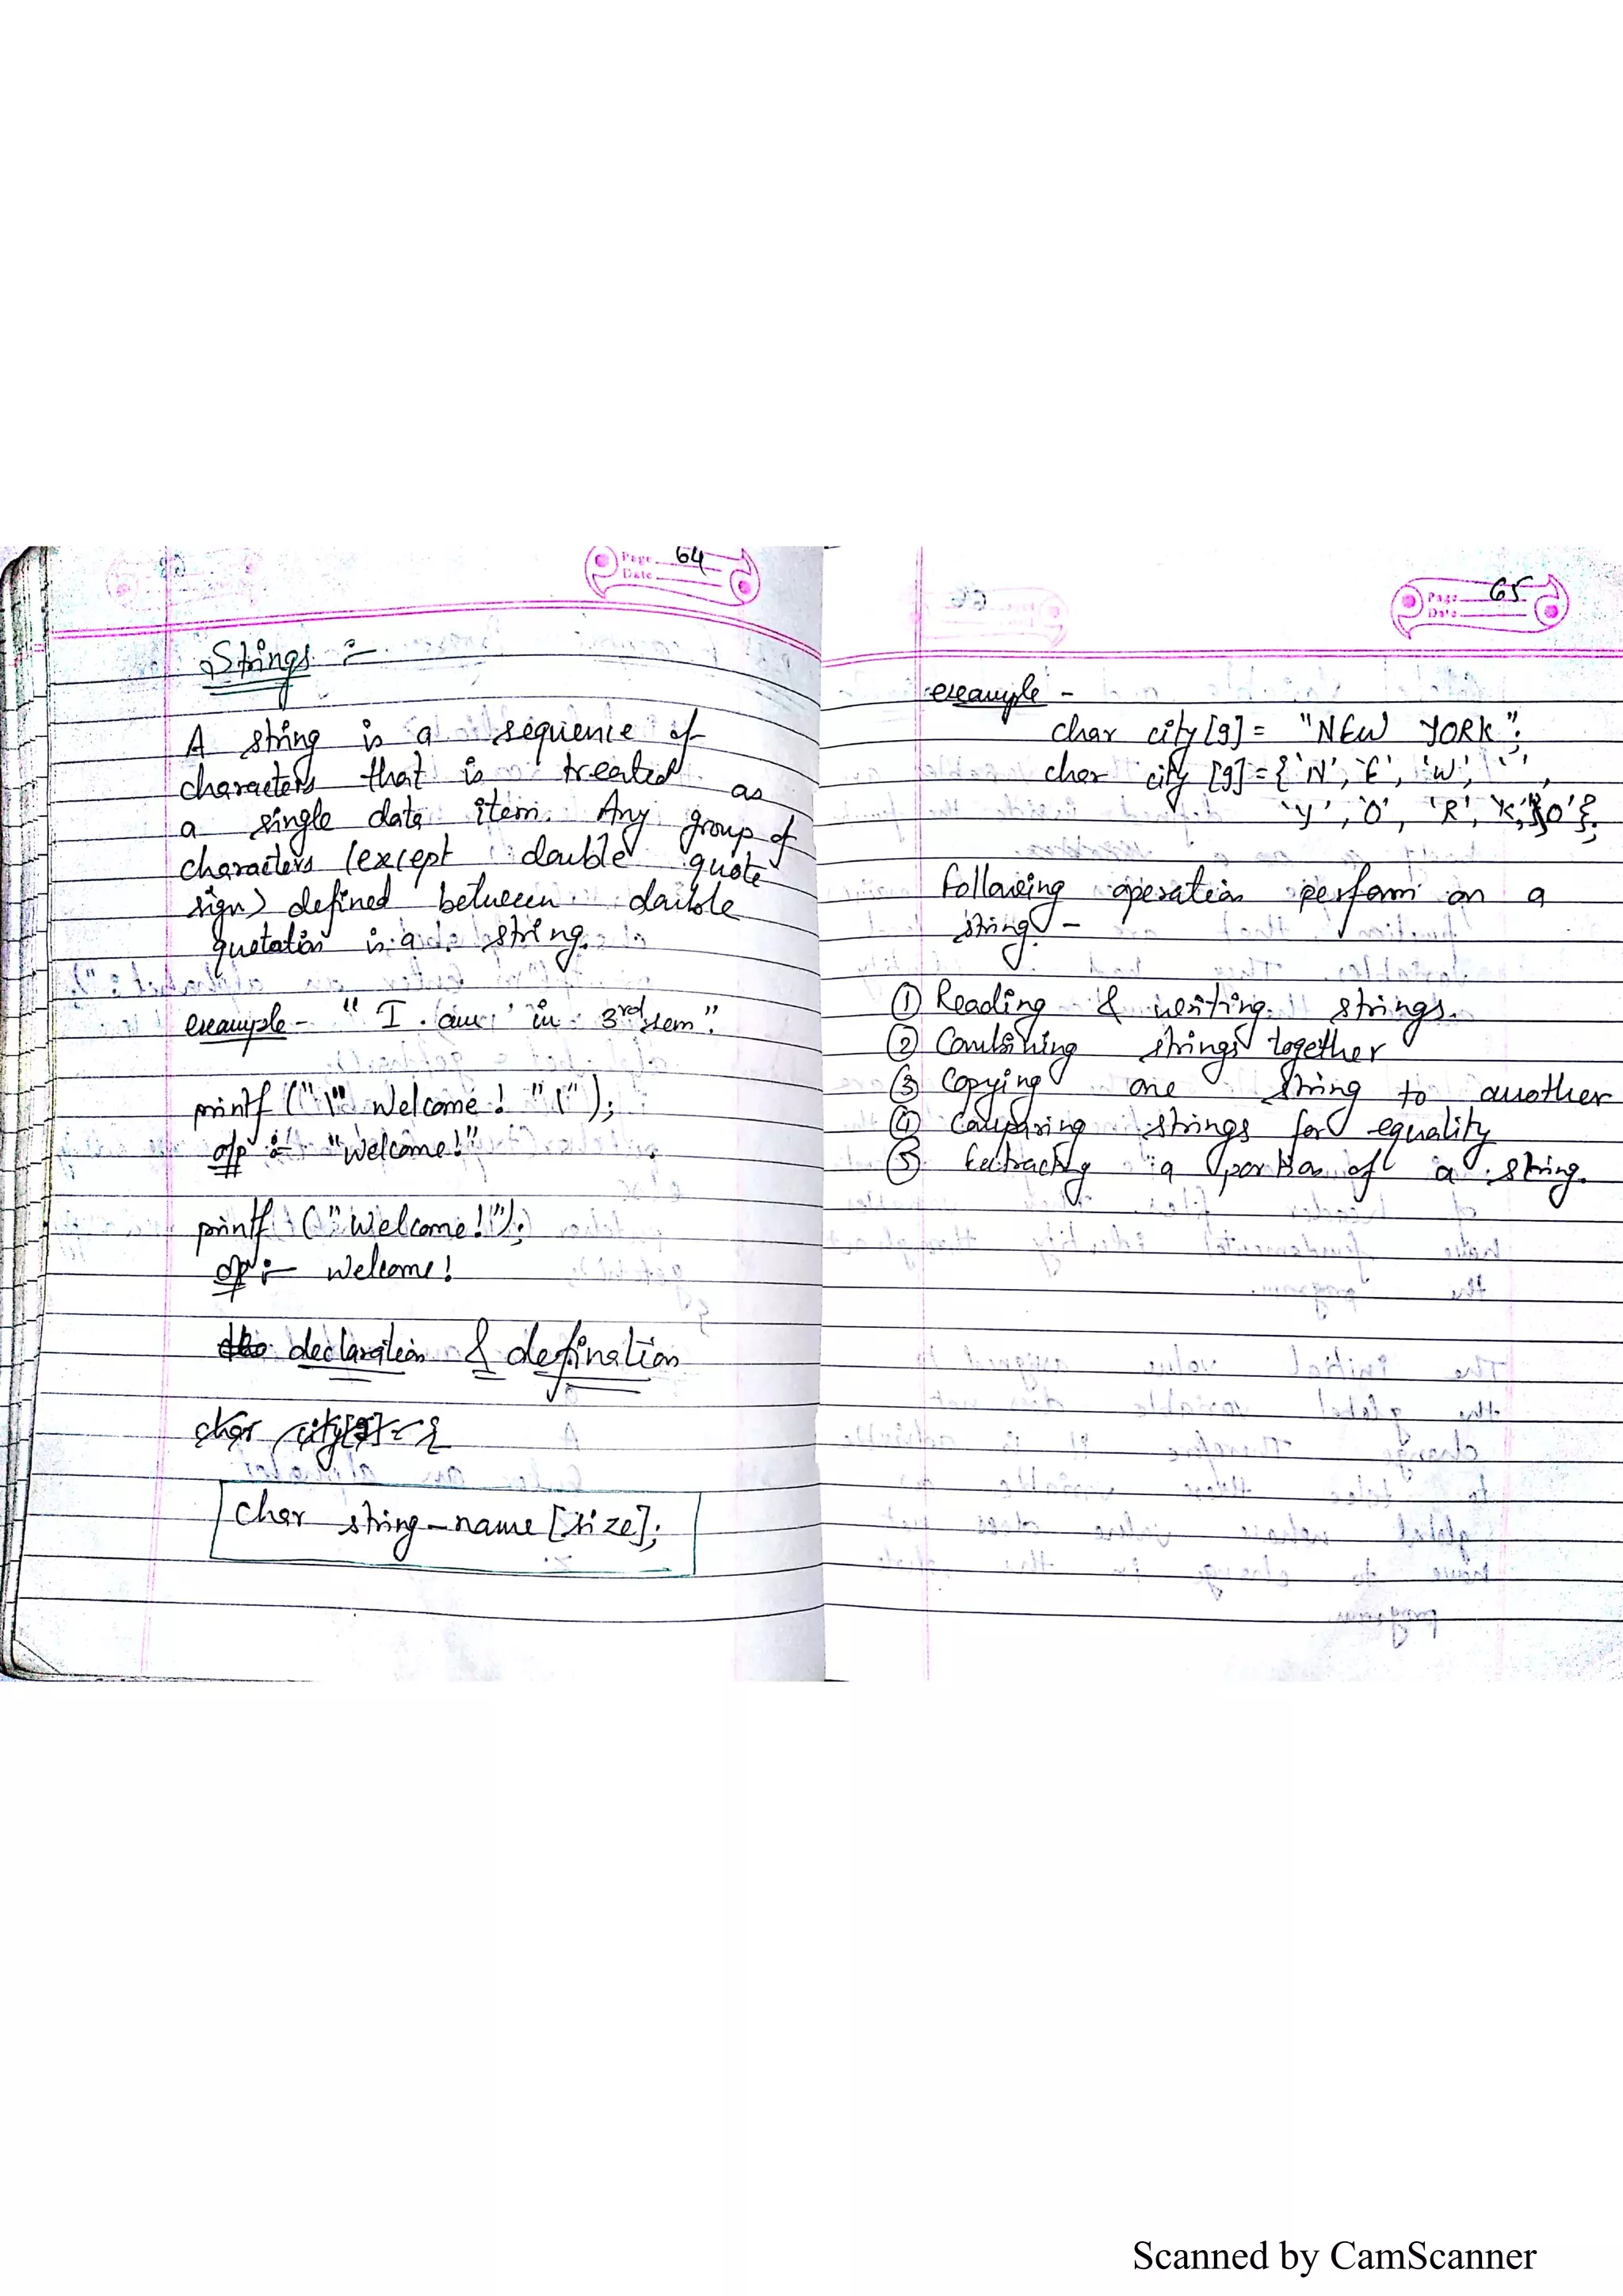 Page 64
Date
Strings :-
A string is a sequence of
characters that is treated as
a single data item. Any group of
characters (except double quote
sign) defined between double
quotation is a string.
example - " I am in 3rd sem".
printf ("\" Welcome! "\");
o/p :- "Welcome!"
printf ("Welcome!");
o/p :- Welcome!
declaration & defination
char city[9] = {
char string-name [size];
Page 65
Date
example -
char city[9] = "NEW YORK";
char city [9] = {'N', 'E', 'W', ' ',
'Y', 'O', 'R', 'K', '\0'};
Following operation perform on a
string -
① Reading & writing strings.
② Combining strings together
③ Copying one string to another
④ Comparing strings for equality
⑤ Extracting a portion of a string.
Scanned by CamScanner